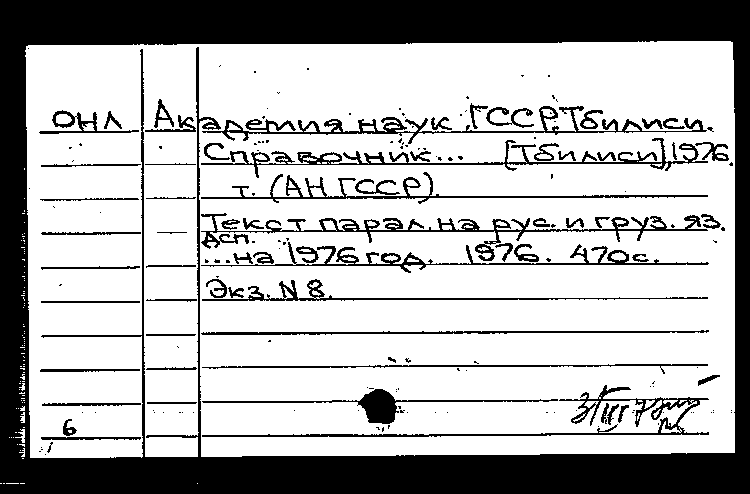 ОНЛ Академия наук ГССР, Тбилиси.
Справочник... [Тбилиси], 1976.
т. (АН ГССР).
Текст парал. на рус. и груз. яз.
дсп.
...на 1976 год. 1976. 470с.
Экз. N 8.
6